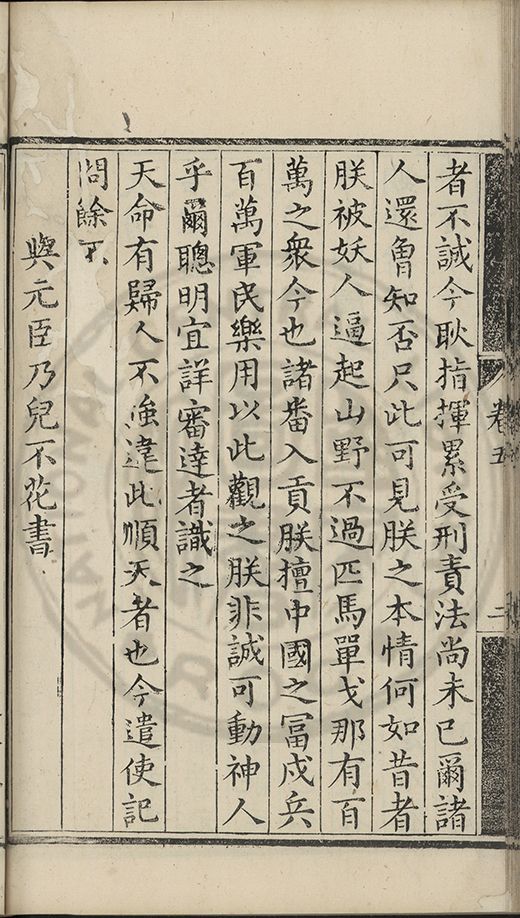 卷五
二
者不誠今耿指揮累受刑責法尚未已爾諸
人還曾知否只此可見朕之本情何如昔者
朕被妖人逼起山野不過匹馬單戈那有百
萬之衆今也諸番入貢朕擅中國之富戍兵
百萬軍民樂用以此觀之朕非誠可動神人
乎爾聰明宜詳審達者識之
天命有歸人不強違此順天者也今遣使記
問餘不
與元臣乃兒不花書